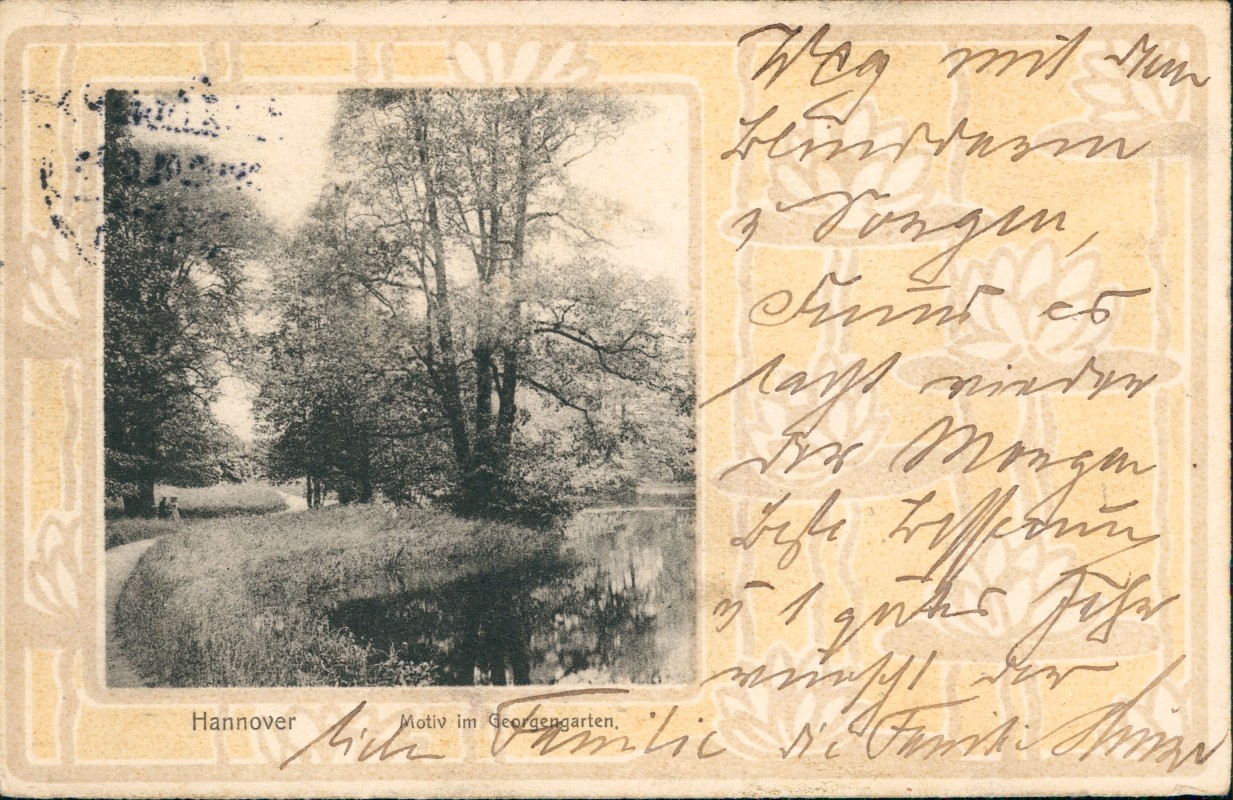 Weg mit dem
Blinddarm
u Sorgen,
es
lacht wieder
der Morgen
Beste Besserung
u 1 gutes Jahr
wünscht der
lieben Familie die Familie
Hannover Motiv im Georgengarten.